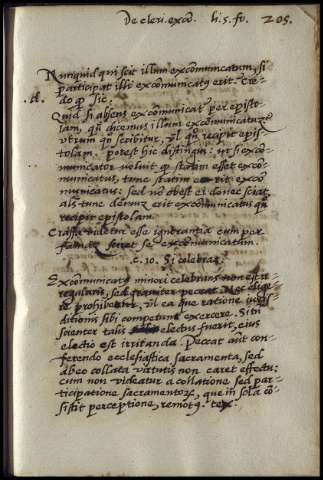 De cleri. excō. li. 5. fo. 205.
Nunquid qui scit illum excōmunicatum, si
participat illi excōmunicatus erit. Cre-
do qȝ sic.
Quid si absens excōicatur per episto-
lam, qñ dicemus illum excōmunicatum
utrum qñ scribitur, vl' qñ recipit epis-
tolam. potest hic distingui: ut si excō-
municator voluit qȝ statim esset excō-
municatus, tunc statim erit excō-
municatus: sed nō obest ei donec sciat,
als tunc demum erit excōmunicatus qñ
recipit epistolam.
Crassa videtur esse ignorantia cum par-
sciret se excōmunicatum.
c. 10. Si celebrat.
Excōmunicatus minori celebrans non est ir-
regularis, sed graviter peccat. Nec elige-
re prohibetur, vl' ea que ratione iuris-
ditionis sibi competunt exercere. Si tñ
scienter talis electus fuerit, eius
electio est irritanda. Peccat aūt con-
ferendo ecclesiastica sacramenta, sed
ab eo collata virtutis non caret effectu:
cum non videatur a collatione sed par-
ticipatione sacramentorȝ, que in sola cō-
sistit perceptione, remotus. tex.